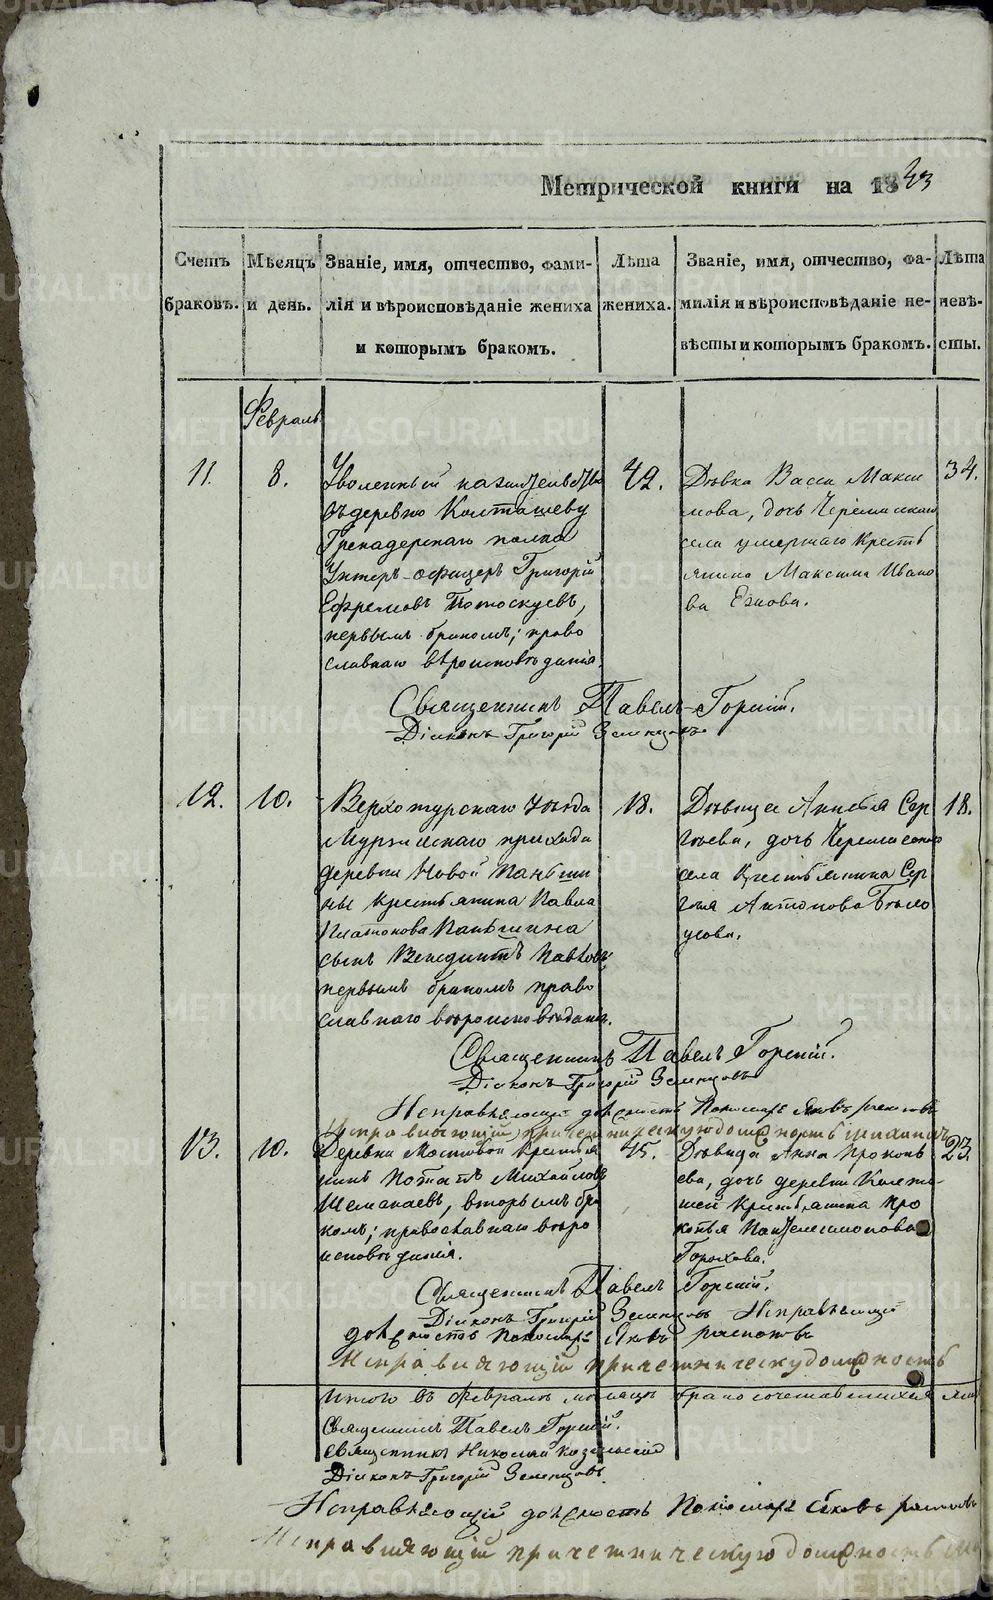 Метрической книги на 1843
Счетъ браковъ.
Мѣсяцъ и день.
Званіе, имя, отчество, фами-
лія и вѣроисповѣданіе жениха
и которымъ бракомъ.
Лѣта жениха.
Званіе, имя, отчество, фа-
милія и вѣроисповѣданіе не-
вѣсты и которымъ бракомъ.
Лѣта невѣ-
сты.
Февраль
11. 8.
Уволенный на жительство
въ деревню Колташеву
Гренадерскаго полка
Унтеръ-офицеръ Григорій
Ефремовъ Потоскуевъ,
первымъ бракомъ; право
славнаго вѣроисповѣданія.
42.
Дѣвка Васса Макси
мова, дочь Черемисскаго
села умершаго крестъ
янина Максима Ивано
ва Ежова.
34.
Священникъ Павелъ Горскій.
Діяконъ Григорій Земляцовъ
12. 10.
Верхотурскаго уѣзда
Мурзинскаго прихода
деревни Новой Паньши
ны крестьянина Павла
Платонова Паньшина
сынъ Венедиктъ Павловъ,
первымъ бракомъ право
славнаго вѣроисповѣданія.
18.
Дѣвица Анисья Сер
гѣева, дочь Черемисскаго
села Крестьянина Сер
гѣя Антонова Бѣло
усова.
18.
Священникъ Павелъ Горскій.
Діяконъ Григорій
Исправляющій должность Пономаря Яковъ
Исправляющій причетническую должность
13. 10.
Деревни Мостовой крестья
нинъ Потапъ Михайловъ
Шеманаевъ, вторымъ бра
комъ; православнаго вѣро
исповѣданія.
45.
Дѣвица Анна Прокопь
ева, дочь деревни
Крестьянина Про
копья Пантелеимонова
Горохова.
23.
Священникъ Павелъ Горскій.
Діяконъ Григорій Исправляющій
должность Пономаря Яковъ
Исправляющій причетническу должность
Итого въ Февралѣ мѣсяцѣ бракосочетавшихся
Священникъ Павелъ Горскій.
Священникъ Николай Козельскій
Діяконъ Григорій
Исправляющій должность Пономаря Яковъ
Исправляющій причетническую должность
METRIKI.GASO-URAL.RU